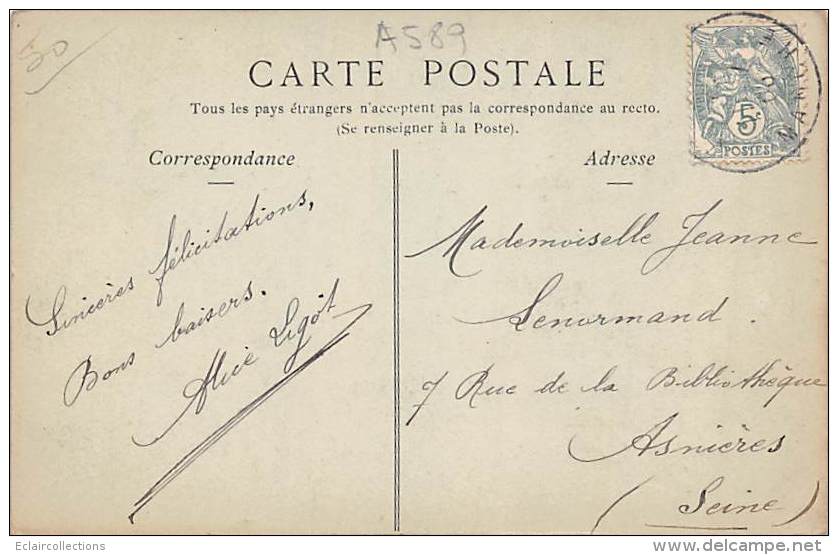 50
A589
CARTE POSTALE
Tous les pays étrangers n'acceptent pas la correspondance au recto.
(Se renseigner à la Poste).
Correspondance
Adresse
5c
POSTES
MANCHE
Sincères félicitations,
Bons baisers.
Alice Ligot
Mademoiselle Jeanne
Lenormand.
7 Rue de la Bibliothèque
Asnières
(Seine)
Eclaircollections
www.delcampe.net